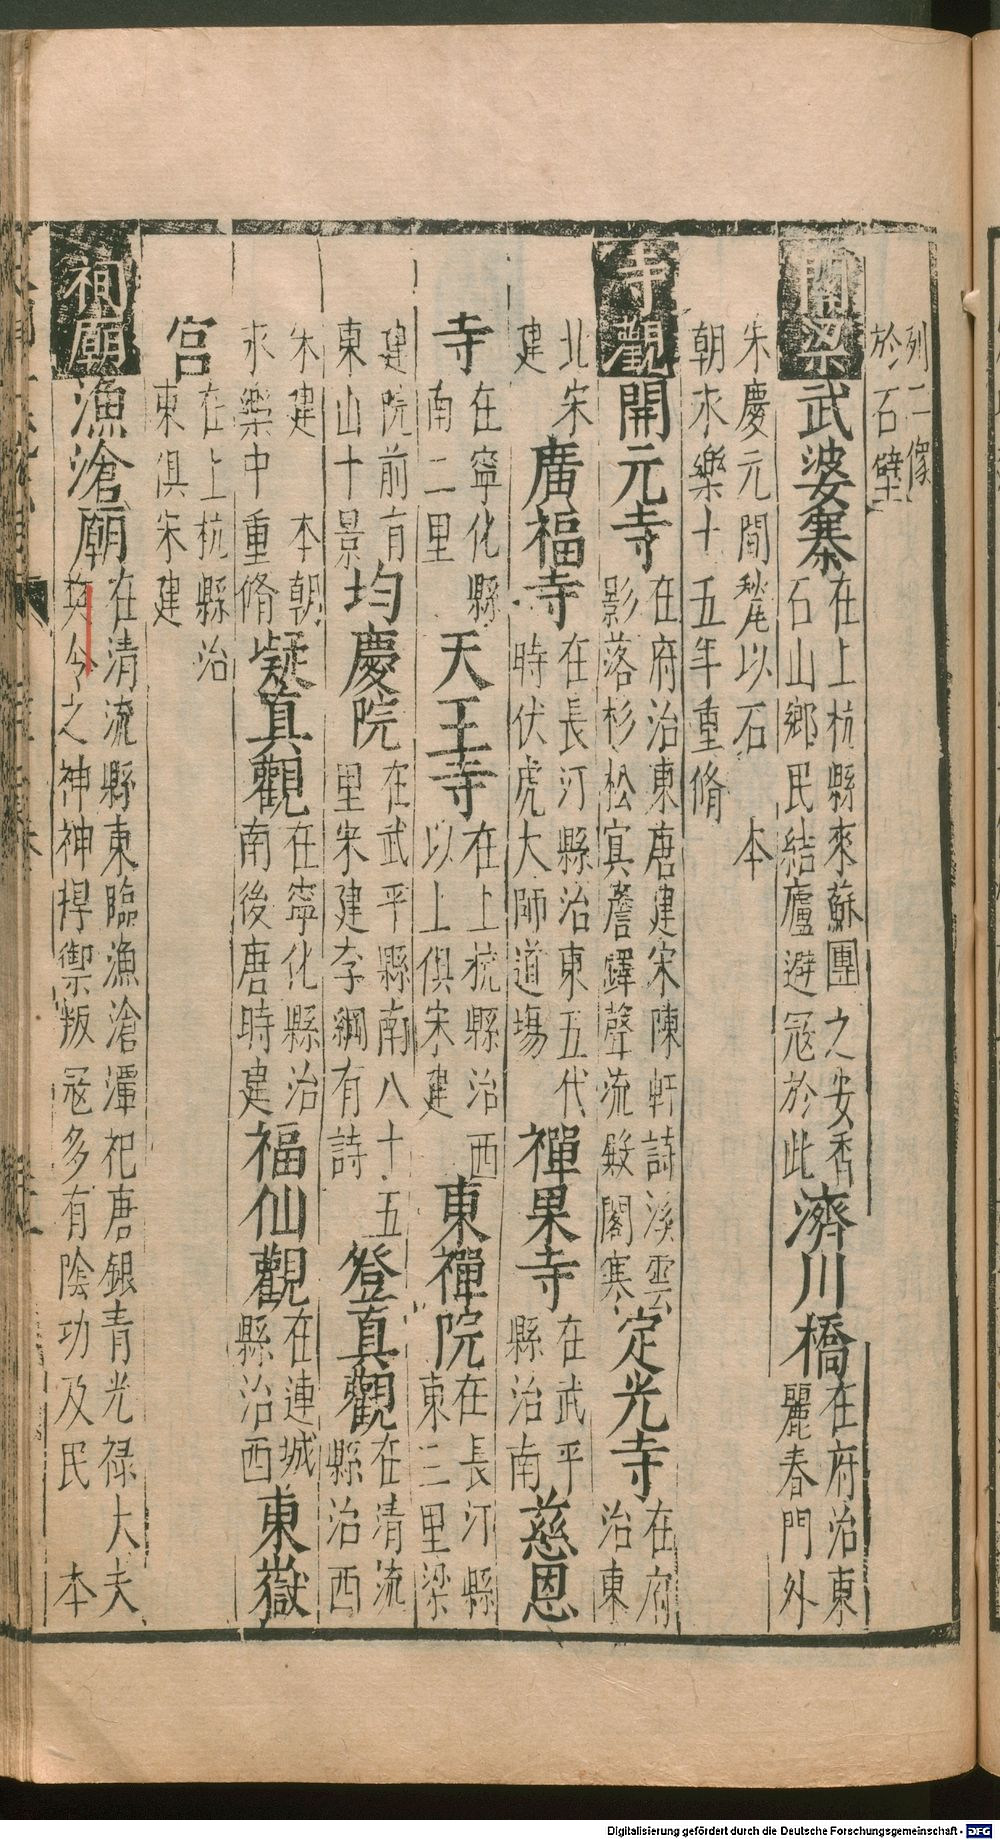 列二像
於石壁
關梁武婆寨在上杭縣來蘇團之安香
石山鄉民結廬避寇於此濟川橋在府治東
麗春門外
朱慶元間甃以石 本
朝永樂十五年重脩
寺觀開元寺在府治東唐建宋陳軒詩溪雲
影落杉松寘簷鐸聲流殿閣寒定光寺在府
治東
北宋
建廣福寺在長汀縣治東五代
時伏虎大師道場禪果寺在武平
縣治南慈恩
寺在寧化縣
南二里天王寺在上杭縣治西
以上俱宋建東禪院在長汀縣
東三里梁
建院前有
東山十景均慶院在武平縣南八十五
里宋建李綱有詩登真觀在清流
縣治西
宋建 本朝
永樂中重脩凝真觀在寧化縣治
南後唐時建福仙觀在連城
縣治西東嶽
宮在上杭縣治
東俱宋建
祠廟漁滄廟在清流縣東臨漁滄潭祀唐銀青光祿大夫
樊令之神神捍禦叛寇多有陰功及民 本
Digitalisierung gefördert durch die Deutsche Forschungsgemeinschaft - DFG